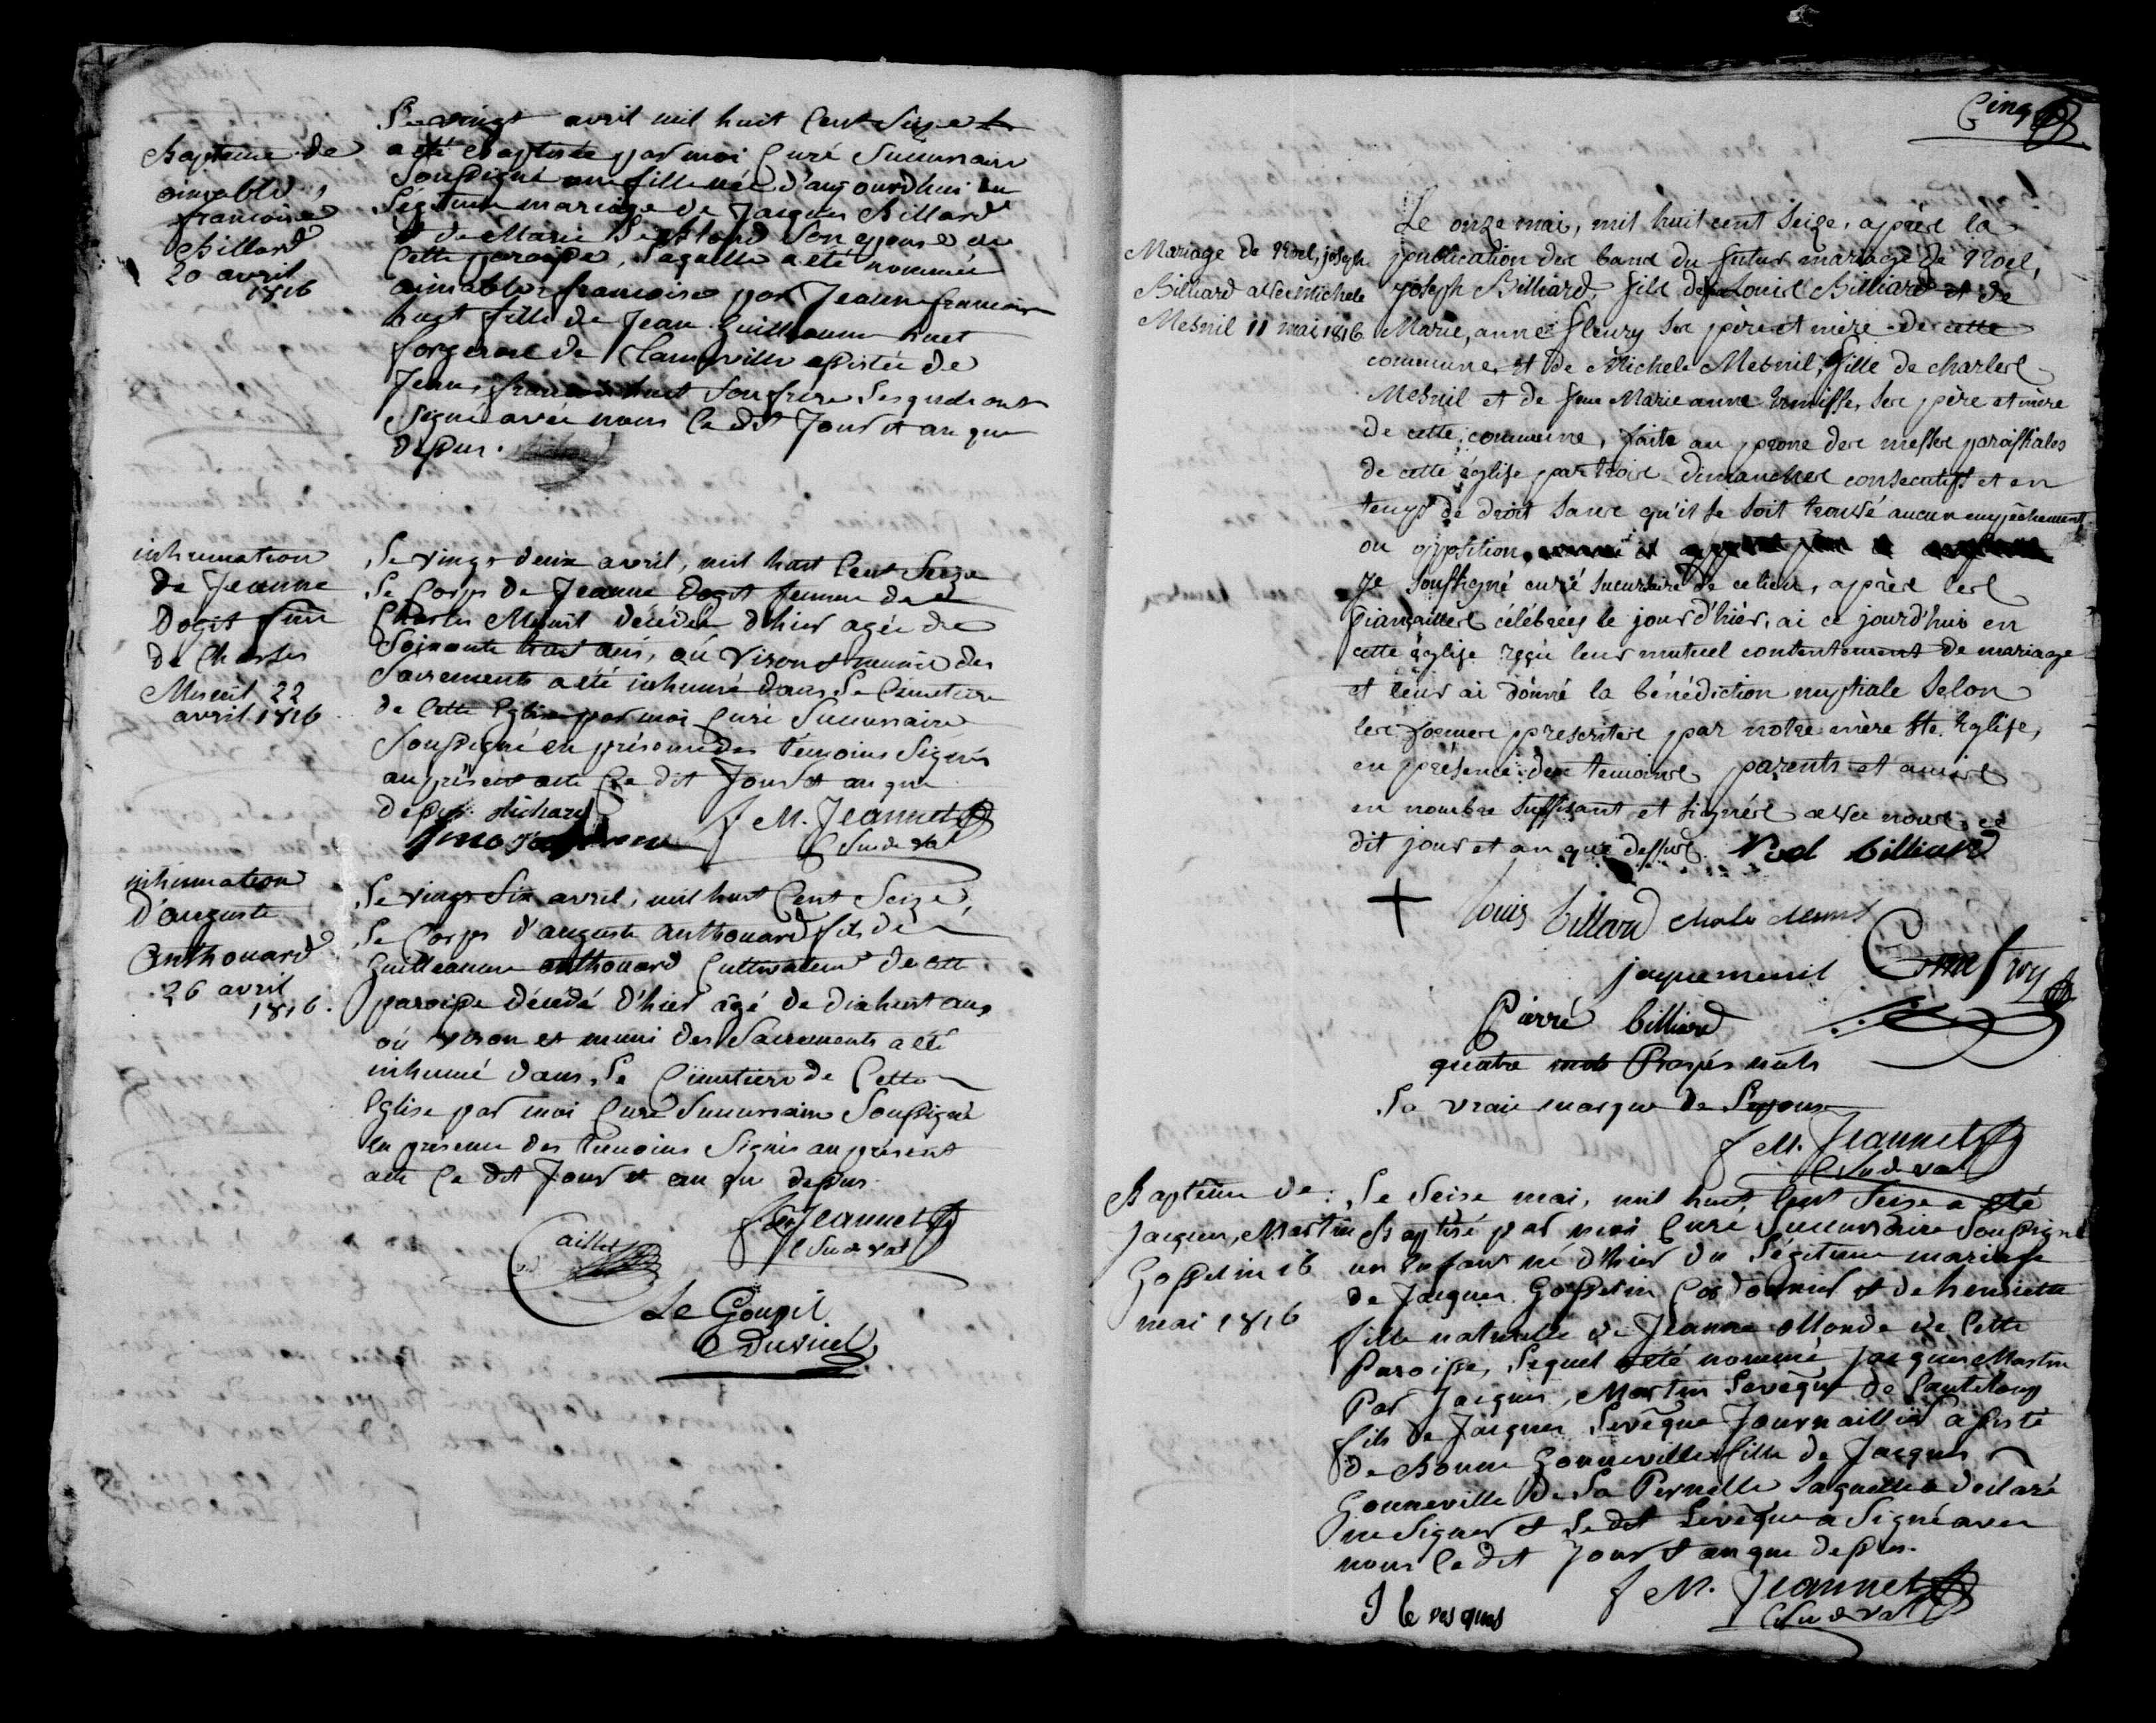 Baptême de
aimable,
francoise
Billard
20 avril
1816
Le vingt avril mil huit Cent Seize
a été Baptisée par moi Curé Succursaire
Soussigné une fille née d'aujourdhui du
Légitime mariage de Jacques Billard
et de Marie son epouse de
Cette paroisse, Laquelle a été nommée
aimable francoise par Jeanne francoise
huet fille de Jean Guillaume huet
forgeron de Canteville assistée de
Jean, francois huet Son frere Lesquels ont
Signé avec nous Ce dit Jour et an que
dessus.
inhumation
de Jeanne
Dogit fme
de Charles
Mesnil 22
avril 1816
Le vingt deux avril, mil huit Cent Seize
Le Corps de Jeanne Dogit femme de
Charles Mesnil décédée d'hier agée de
Soixante huit ans, où viron et munie des
Sacrements a été inhumé dans Le Cimetiere
de Cette Eglise par moi Curé Succursaire
Soussigné en présence des témoins Signés
au présent acte Ce dit Jour et an que
dessus. Richard
f M. Jeannet
C Su de Val
inhumation
D'auguste
Anthouard
26 avril
1816.
Le vingt Six avril, mil huit Cent Seize,
Le Corps d'auguste Anthouard fils de
Guilleaume anthouard Cultivateur de Cette
paroisse décédé d'hier âgé de dixhuit ans
où viron et muni des Sacrements a été
inhumé dans Le Cimetiere de Cette
Eglise par moi Curé Succursaire Soussigné
en présence des témoins Signés au présent
acte Ce dit Jour et an que dessus.
f M Jeannet
C Su de Val
Caillet
Le Goupil
Duvivel
Cinq
Mariage de Noel, joseph
Billiard avec Michele
Mesnil 11 mai 1816
Le onze mai, mil huit cent seize, après la
publication des bans du futur mariage de Noel,
joseph Billiard, fils de Louis Billiard et de
Marie, anne fleury ses père et mère de cette
commune, et de Michele Mesnil, fille de charles
Mesnil et de feue Marie anne ses père et mère
de cette commune, faite au prone des messes paroissiales
de cette église par trois dimanches consecutifs et en
temps de droit sans qu'il se soit trouvé aucun empêchement
ou opposition
Je soussigné curé succursaire de ce lieu, après les
fiançailles célébrées le jour d'hier, ai ce jourd'hui en
cette église reçu leur mutuel contentement de mariage
et leur ai donné la bénédiction nuptiale selon
les formes prescrites par notre mère Ste. Eglise,
en présence des temoins parents et amis
en nombre suffisant et signés avec nous, ce
dit jour et an que dessus. Noel billiard
+ louis billard
jaque menil
Pierre billiard
quatre mots Rayés nuls
La vraie marque de Lepouse
f M. Jeannet
C Su de Val
Baptême de
Jacques, Martin
Gosselin 16
mai 1816
Le Seise mai, mil huit Cent Seise a été
Baptisé par moi Curé Succursaire Soussigné
un Enfant né d'hier du Légitime mariage
de Jacques Gosselin Cordonnier et de henriette
fille naturelle de Jeanne Monde de Cette
Paroisse, Lequel a été nommé, Jacques Martin
Par Jacques, Martin Levêque de Canteloup
fils de Jacques Levêque Journaillier assisté
de Bonne Gonneville fille de Jacques
Gonneville de La Pernelle Laquelle a déclaré
ne Signer et Le dit Levêque a Signé avec
nous Ce dit Jour et an que dessus.
f M. Jeannet
C Su de Val
J le vesque